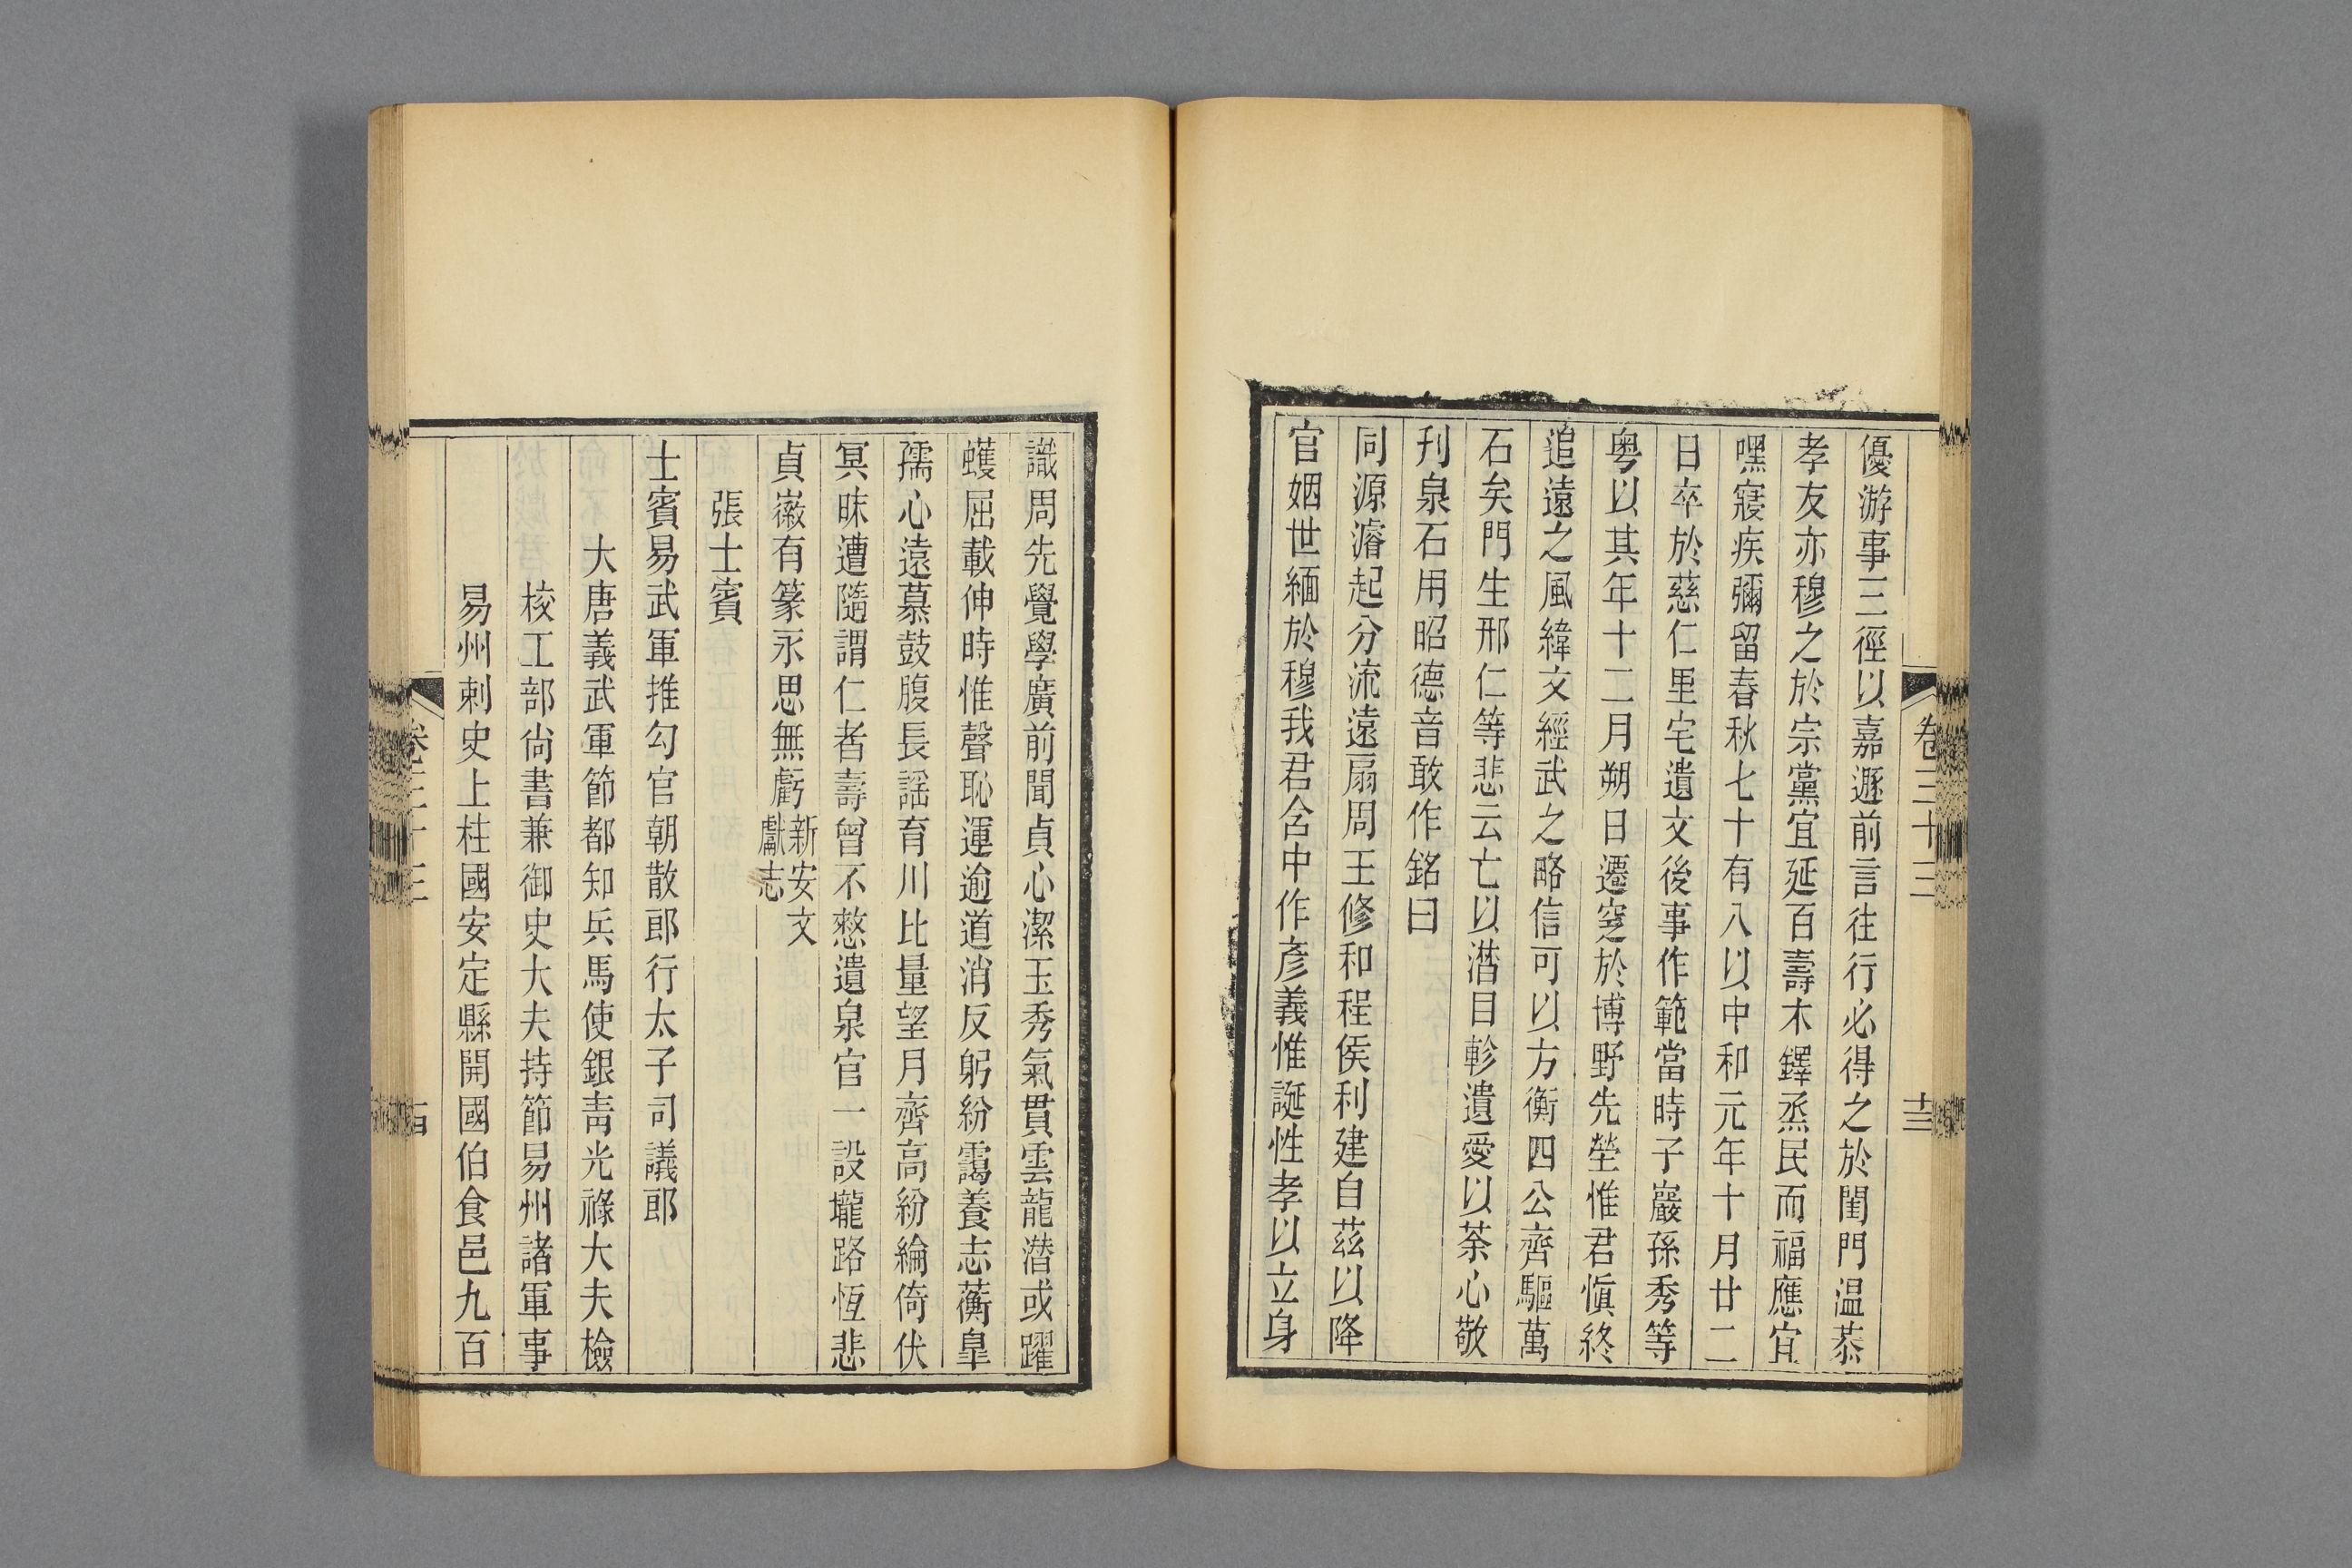 優游事三徑以嘉遯前言往行必得之於閨門温恭
孝友亦穆之於宗黨宜延百壽木鐸烝民而福應宜
嘿寢疾彌留春秋七十有八以中和元年十月廿二
日卒於慈仁里宅遺文後事作範當時子巖孫秀等
粤以其年十二月朔日遷窆於博野先塋惟君愼終
追遠之風緯文經武之略信可以方衡四公齊驅萬
石矣門生邢仁等悲云亡以潸目軫遺愛以荼心敬
刋泉石用昭德音敢作銘曰
同源濬起分流遠扇周王修和程侯利建自茲以降
官姻世緬於穆我君含中作彥義惟誕性孝以立身
卷三十三
十三
識周先覺學廣前聞貞心潔玉秀氣貫雲龍潛或躍
蠖屈載伸時惟聲恥運逾道消反躬紛靄養志蘅臯
孺心遠慕鼓腹長謡育川比量望月齊高紛綸倚伏
冥昧遭隨謂仁者壽曾不憖遺泉官一設壠路恆悲
貞徽有篆永思無虧新安文獻志
張士賓
士賓易武軍推勾官朝散郎行太子司議郎
大唐義武軍節都知兵馬使銀青光祿大夫檢
校工部尙書兼御史大夫持節易州諸軍事
易州刺史上柱國安定縣開國伯食邑九百
卷三十三